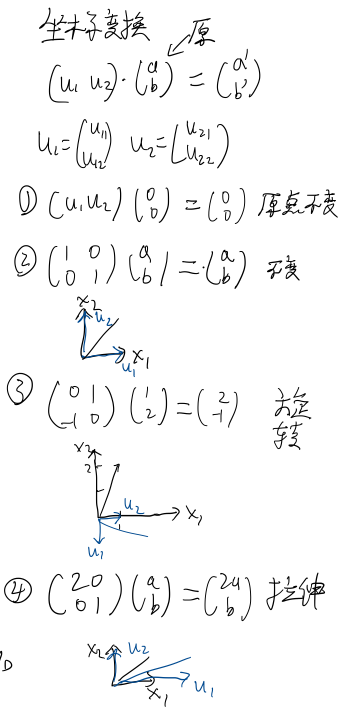 坐标变换 原
(u₁ u₂)·(a b) = (a' b')
u₁=(u₁₁ u₁₂) u₂=(u₂₁ u₂₂)
① (u₁ u₂)(0 0) = (0 0) 原点不变
② (1 0 0 1)(a b) = (a b) 不变
x₂
u₂
x₁
u₁
③ (0 1 -1 0)(1 2) = (2 -1) 旋
转
x₂
2
u₂
x₁
u₁
④ (2 0 0 1)(a b) = (2a b) 拉伸
x₂ u₂
x₁ u₁